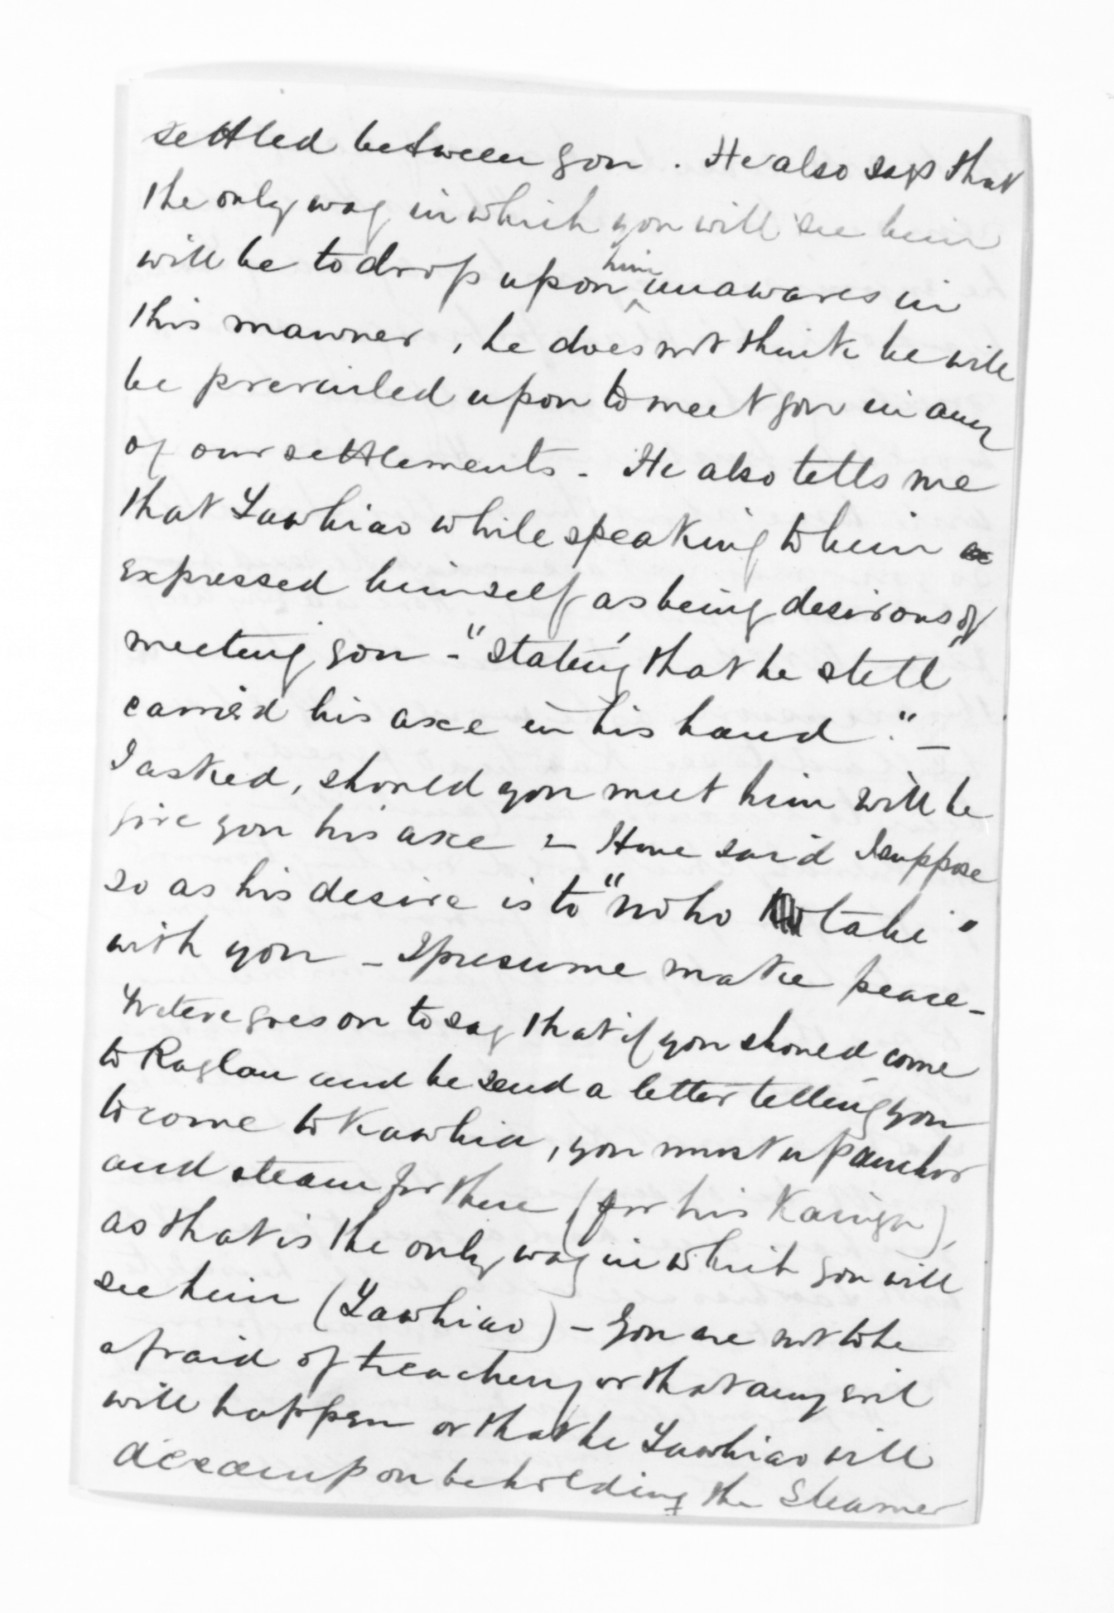 settled between you. He also says that
the only way in which you will see him
will be to drop upon him unawares in
this manner, he does not think he will
be prevailed upon to meet you in any
of our settlements - He also tells me
that Tawhiao while speaking to him
expressed himself as being desirous of
meeting you - "stating that he still
carried his axe in his hand." -
I asked, should you meet him will he
give you his axe - Hone said I suppose
so as his desire is to "noho tahi"
with you - I presume make peace -
goes on to say that if you should come
to Raglan and he send a letter telling you
to come to Kawhia, you must up anchor
and steam for there (for his Kainga),
as that is the only way in which you will
see him (Tawhiao) - You are not to be
afraid of treachery or that any evil
will happen or that he Tawhiao will
decamp on beholding the Steamer